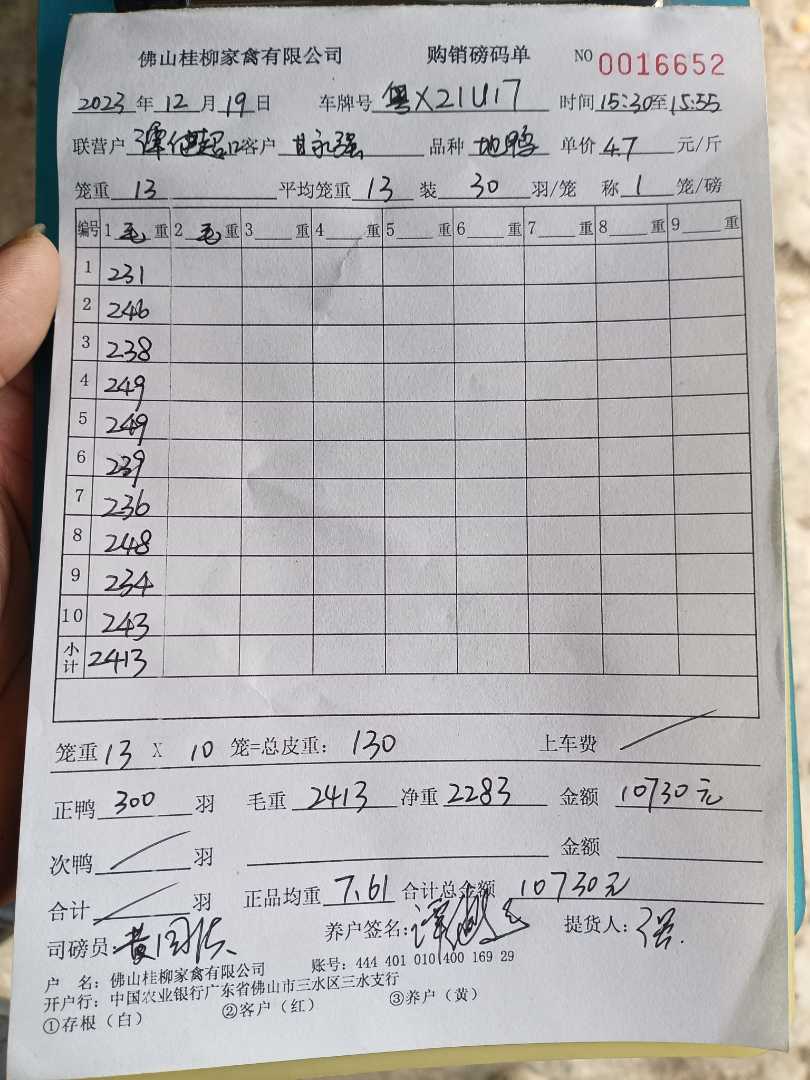 佛山桂柳家禽有限公司 购销磅码单 NO 0016652
2023年12月19日 车牌号 粤X21U17 时间15:30至15:55
联营户 客户 甘永强 品种 地鸭 单价 4.7 元/斤
笼重 13 平均笼重 13 装 30 羽/笼 称 1 笼/磅
编号 1 毛 重 2 毛 重 3 重 4 重 5 重 6 重 7 重 8 重 9 重
1 231
2 246
3 238
4 249
5 249
6 239
7 236
8 248
9 234
10 243
小计 2413
笼重 13 X 10 笼=总皮重: 130 上车费
正鸭 300 羽 毛重 2413 净重 2283 金额 10730元
次鸭 羽 金额
合计 羽 正品均重 7.61 合计总金额 10730元
司磅员: 养户签名: 提货人: 强
户 名: 佛山桂柳家禽有限公司 账号: 444 401 010 400 169 29
开户行: 中国农业银行广东省佛山市三水区三水支行
①存根（白） ②客户（红） ③养户（黄）